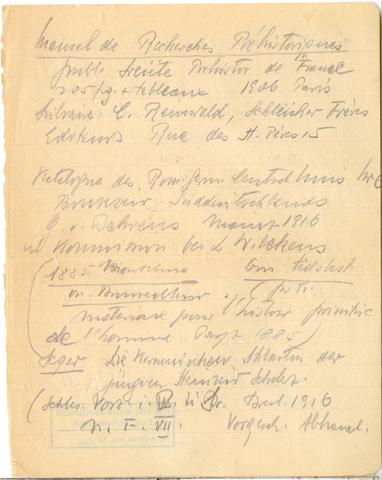 Manuel de Recherches Préhistoriques
publ. Société Préhistor de France
285 pg + tableaux 1906 Paris
Librairie C. Reinwald, Schleicher Frères
Editeurs Rue des St. Pères 15
Katalogue des Röm. Germ. Central Mus No 6
Bronzezeit Süddeutschlands
G. v. Behrens Mainz 1916
in Kommission bei L Wilckens
(1885 Montelius
matériaux pour l'histoir primitive
de l'homme 1885)
Seger Die Keramischen Stilarten der
jüngeren Steinzeit Schles.
(Schles. Vorz. i. B. u. Schr. Bresl. 1916
N. F. VII. Vorgesch. Abhand.